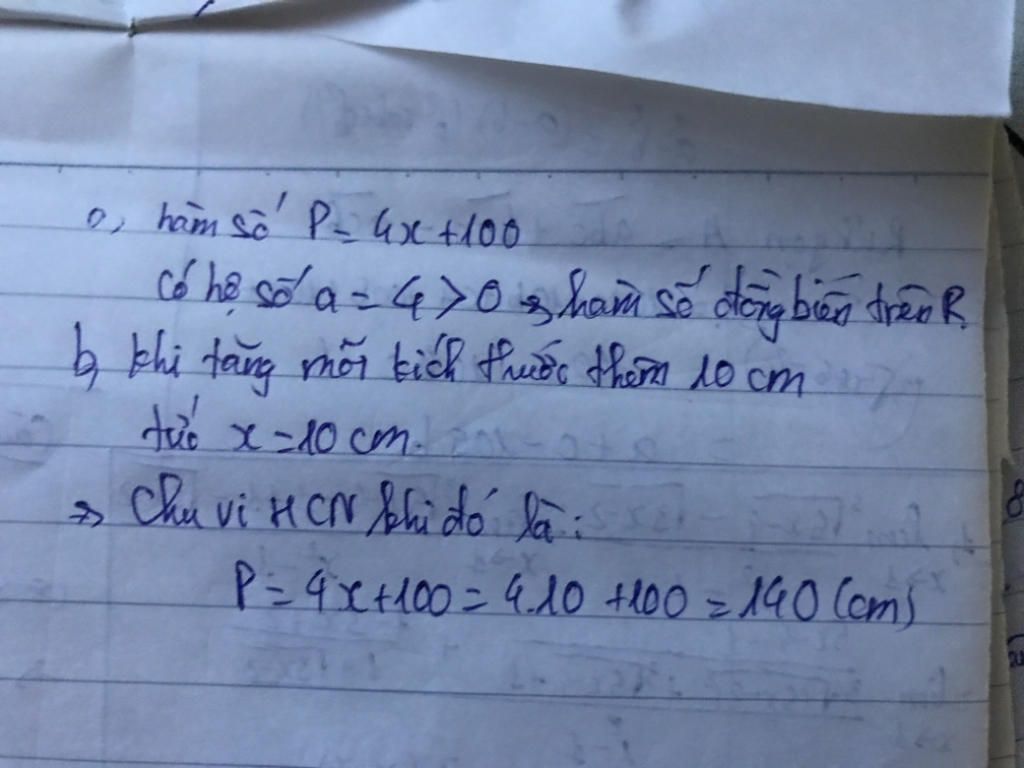 a, hàm số P = 4x + 100
có hệ số a = 4 > 0 => hàm số đồng biến trên R.
b, khi tăng mỗi kích thước thêm 10 cm
tức x = 10 cm.
=> Chu vi HCN khi đó là:
P = 4x + 100 = 4.10 + 100 = 140 (cm)